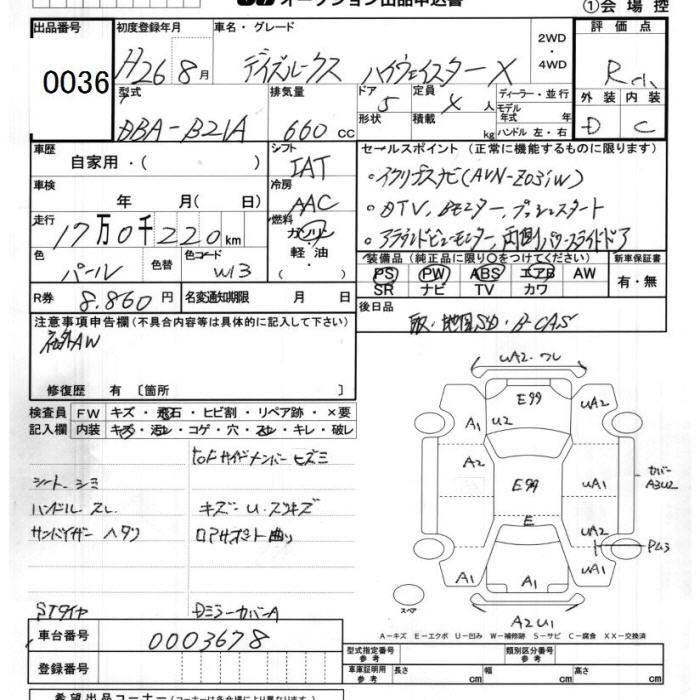 オークション出品申込書
①会場控
出品番号 初度登録年月 車名・グレード 2WD・4WD 評価点
0036 H26 8月 デイズルークス ハイウェイスターX R
型式 排気量 ドア 定員 ディーラー・並行 外装 内装
DBA-B21A 660cc 5 人 モデル年式 年 D C
形状 積載 kg ハンドル 左・右
車歴 シフト セールスポイント(正常に機能するものに限ります)
自家用・( ) IAT
車検 冷房 ・イクリプスナビ(AVN-Z03iW)
年 月( 日) AAC ・DTV、Bモニター、プッシュスタート
走行 燃料 ・アラウンドビューモニター、両側パワースライドドア
17万0千220km ガソリン 軽油
色 色替 色コード 装備品(純正品に限り○をつけてください) 新車保証書
パール W13 PS PW ABS エアB AW 有・無
SR ナビ TV カワ
R券 8.860円 名変通知期限 月 日 後日品
取・地図SD・B-CAS
注意事項申告欄(不具合内容等は具体的に記入して下さい)
社外AW
修復歴 有 [箇所 ]
検査員 FW キズ・飛石・ヒビ割・リペア跡・×要
記入欄 内装 キズ・汚レ・コゲ・穴・スレ・キレ・破レ
サイドメンバー ヒズミ
シート シミ
ハンドル スレ キズ・U・スリキズ
サンバイザー ヘタリ ロアサポート曲り
STタイヤ Dミラーカバー A
UA2 ワレ
E99
UA2
A1 U2
A2
E99 UA1 カバー A3U2
E
UA2
A1 A1 UA1
スペア
A2U1
A-キズ E-エクボ U-凹み W-補修跡 S-サビ C-腐食 XX-交換済
車台番号 0003678
型式指定番号 参考 類別区分番号 参考
登録番号 車庫証明用 参考 長さ cm 幅 cm 高さ cm
希望出品コーナー(コーナーは各会場により異なります)